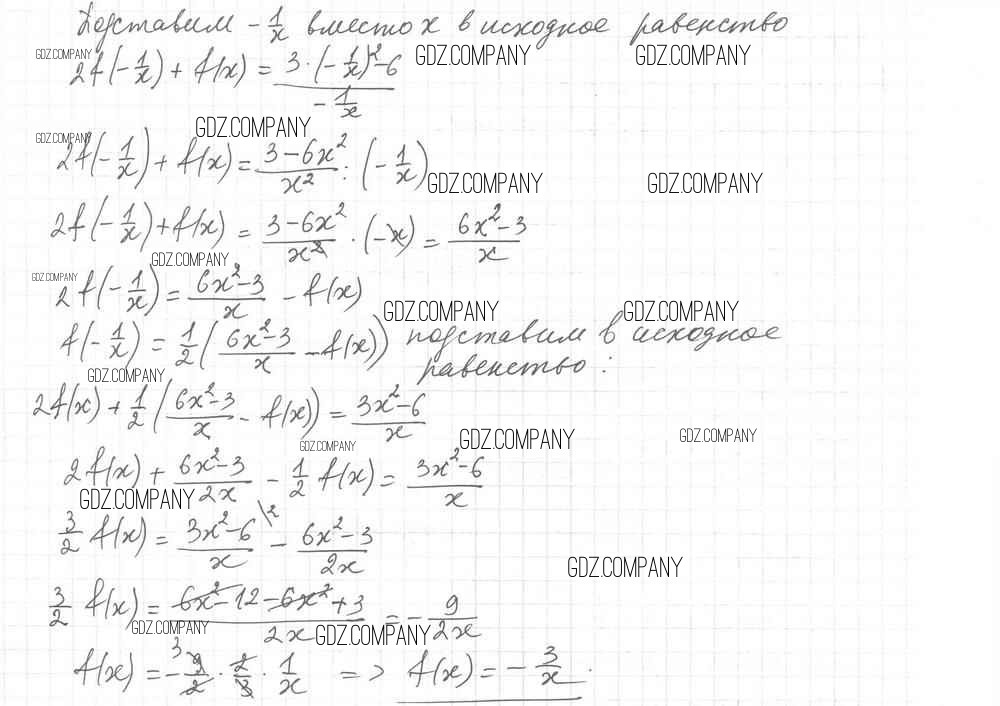 Подставим -1/x вместо x в исходное равенство
GDZ.COMPANY GDZ.COMPANY GDZ.COMPANY
2f(-1/x) + f(x) = (3·(-1/x)²-6)/(-1/x)
GDZ.COMPANY GDZ.COMPANY
2f(-1/x) + f(x) = (3-6x²)/x² : (-1/x)
GDZ.COMPANY GDZ.COMPANY
2f(-1/x)+f(x) = (3-6x²)/x² · (-x) = (6x²-3)/x
GDZ.COMPANY
GDZ.COMPANY
2f(-1/x) = (6x²-3)/x - f(x)
GDZ.COMPANY GDZ.COMPANY
f(-1/x) = 1/2((6x²-3)/x - f(x)) подставим в исходное
равенство:
GDZ.COMPANY
2f(x) + 1/2((6x²-3)/x - f(x)) = (3x²-6)/x
GDZ.COMPANY GDZ.COMPANY GDZ.COMPANY
2f(x) + (6x²-3)/2x - 1/2 f(x) = (3x²-6)/x
GDZ.COMPANY
3/2 f(x) = (3x²-6)/x \² - (6x²-3)/2x
GDZ.COMPANY
3/2 f(x) = (6x²-12-6x²+3)/2x = -9/2x
GDZ.COMPANY GDZ.COMPANY
f(x) = -9/2 · 2/3 · 1/x => f(x) = -3/x.